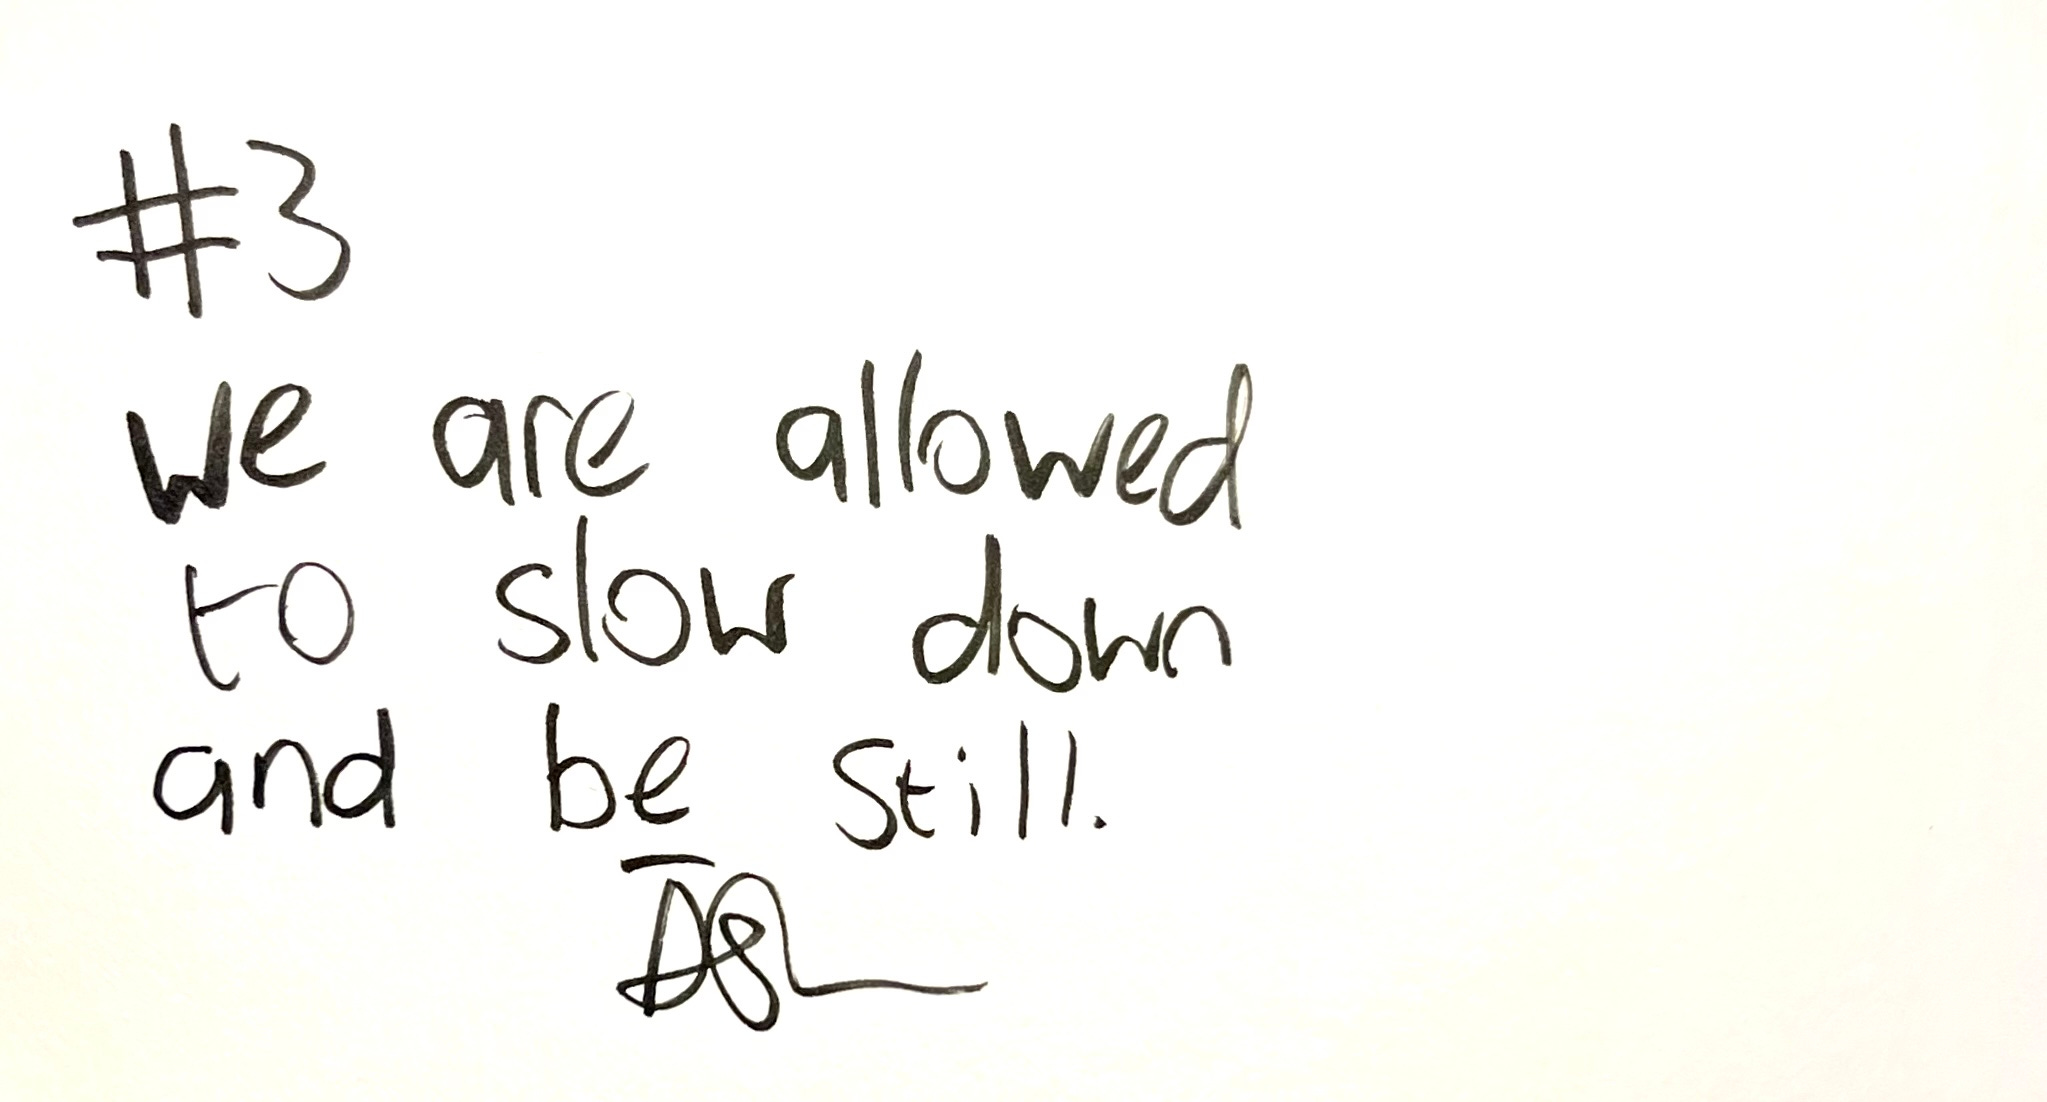 #3
we are allowed
to slow down
and be still.